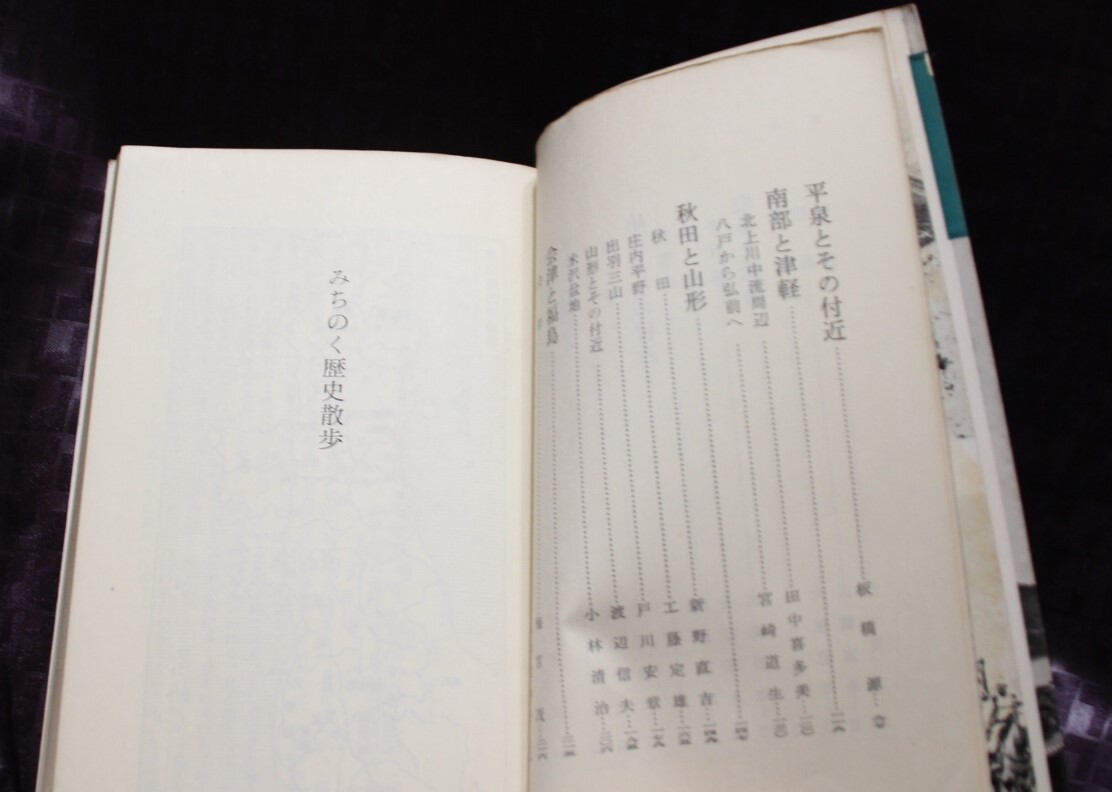 平泉とその付近……板橋 源…
南部と津軽……一一八
北上川中流周辺……田中喜多美…
八戸から弘前へ……宮崎道生…
秋田と山形……一四七
秋田……新野直吉…一四九
庄内平野……工藤定雄…一六五
出羽三山……戸川安章…
山形とその付近……渡辺信夫…
米沢盆地……小林清治…
会津と福島……
みちのく歴史散歩